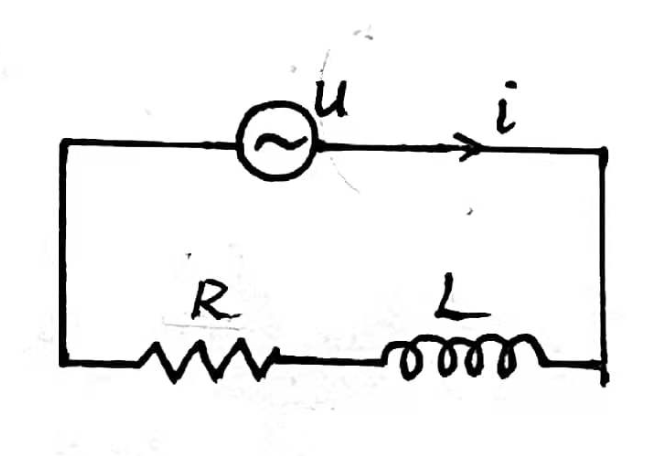 u
i
R L